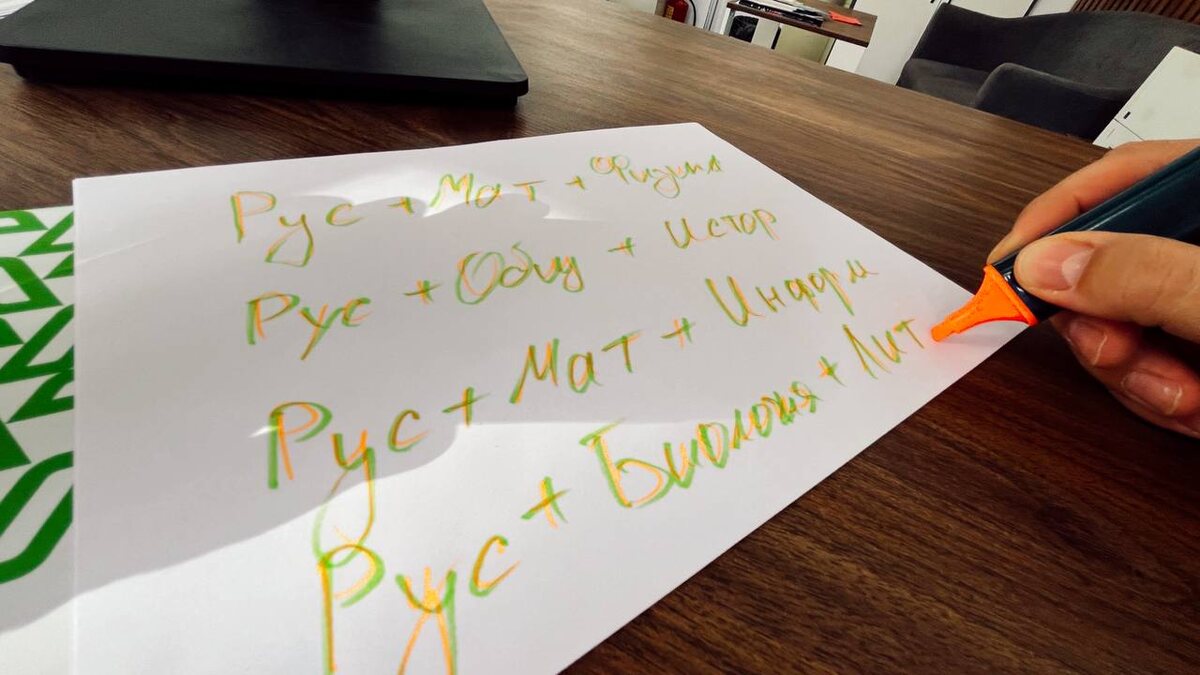 Рус + Мат + Физика
Рус + Общ + Истор
Рус + Мат + Информ
Рус + Биология + Лит